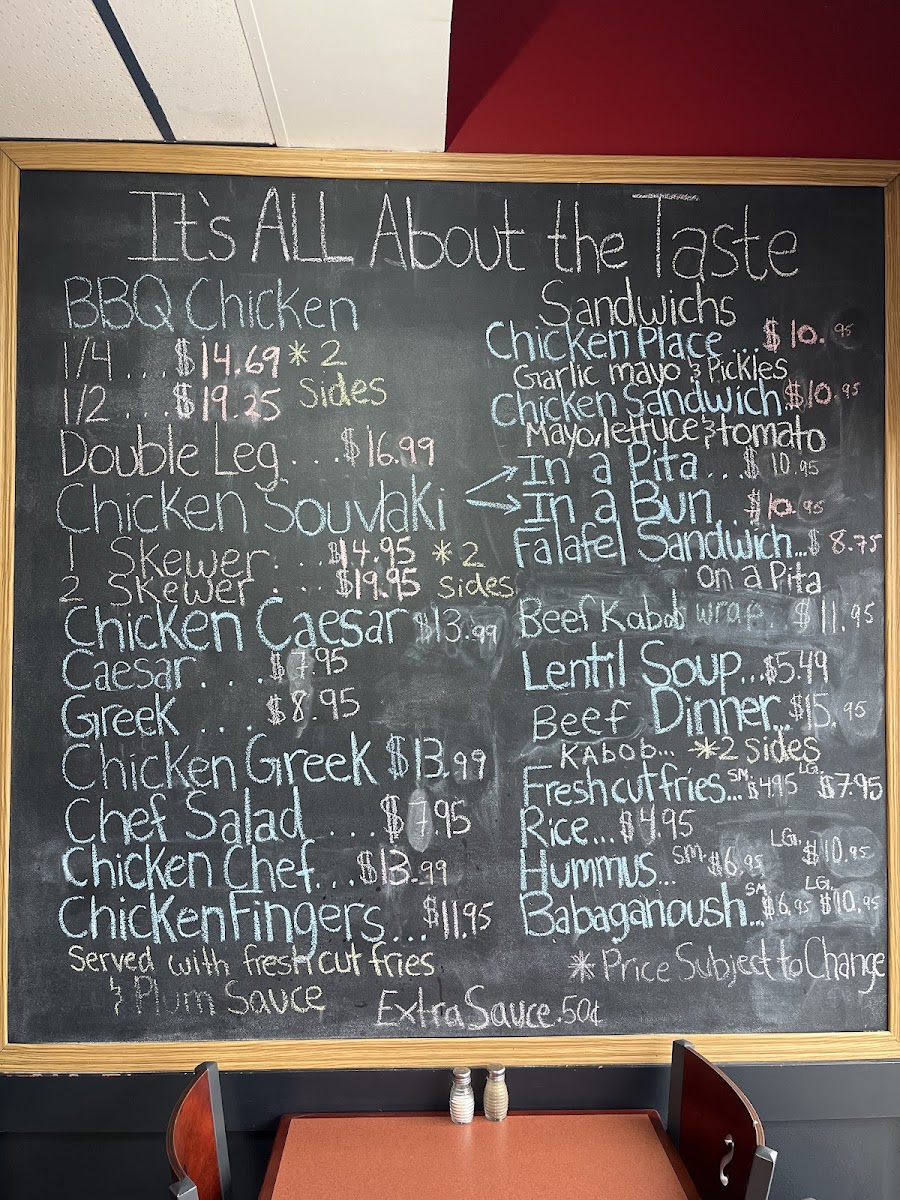 It's ALL About the Taste
BBQ Chicken
1/4 .... $14.69 * 2
1/2 .... $19.25 Sides
Double Leg. ... $16.99
Chicken Souvlaki
1 Skewer. ... $14.95 * 2
2 Skewer. ... $19.95 sides
Chicken Caesar $13.99
Caesar .... $7.95
Greek .... $8.95
Chicken Greek $13.99
Chef Salad .... $7.95
Chicken Chef... $13.99
Chicken Fingers... $11.95
Served with fresh cut fries
& Plum Sauce
Sandwichs
Chicken Place ... $10.95
Garlic mayo & Pickles
Chicken Sandwich.. $10.95
Mayo, lettuce & tomato
In a Pita ... $10.95
In a Bun $10.95
Falafel Sandwich... $8.75
on a Pita
Beef Kabob wrap. $11.95
Lentil Soup... $5.49
Beef Dinner... $15.95
KABOB... *2 sides
Fresh cut fries... SM. $4.95 LG. $7.95
Rice... $4.95
Hummus... SM. $6.95 LG. $10.95
Babaganoush... SM. $6.95 LG. $10.95
* Price Subject to Change
Extra Sauce .50¢